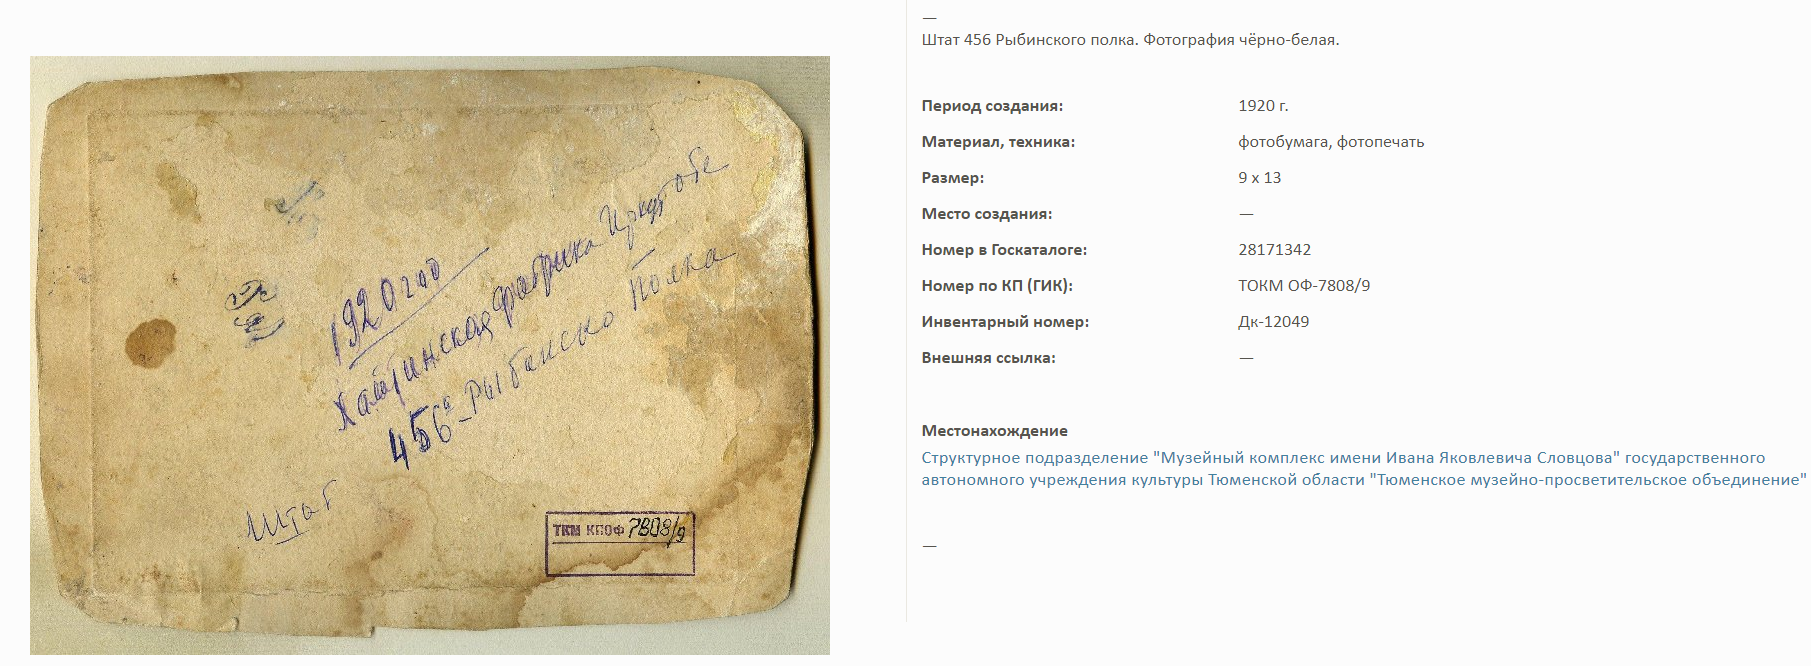 1920 год
Хайтинская фабрика Иркутске
456й Рыбенско Полка
Штаб
ТКМ КПОФ 7808/9
—
Штат 456 Рыбинского полка. Фотография чёрно-белая.
Период создания: 1920 г.
Материал, техника: фотобумага, фотопечать
Размер: 9 х 13
Место создания: —
Номер в Госкаталоге: 28171342
Номер по КП (ГИК): ТОКМ ОФ-7808/9
Инвентарный номер: Дк-12049
Внешняя ссылка: —
Местонахождение
Структурное подразделение "Музейный комплекс имени Ивана Яковлевича Словцова" государственного
автономного учреждения культуры Тюменской области "Тюменское музейно-просветительское объединение"
—